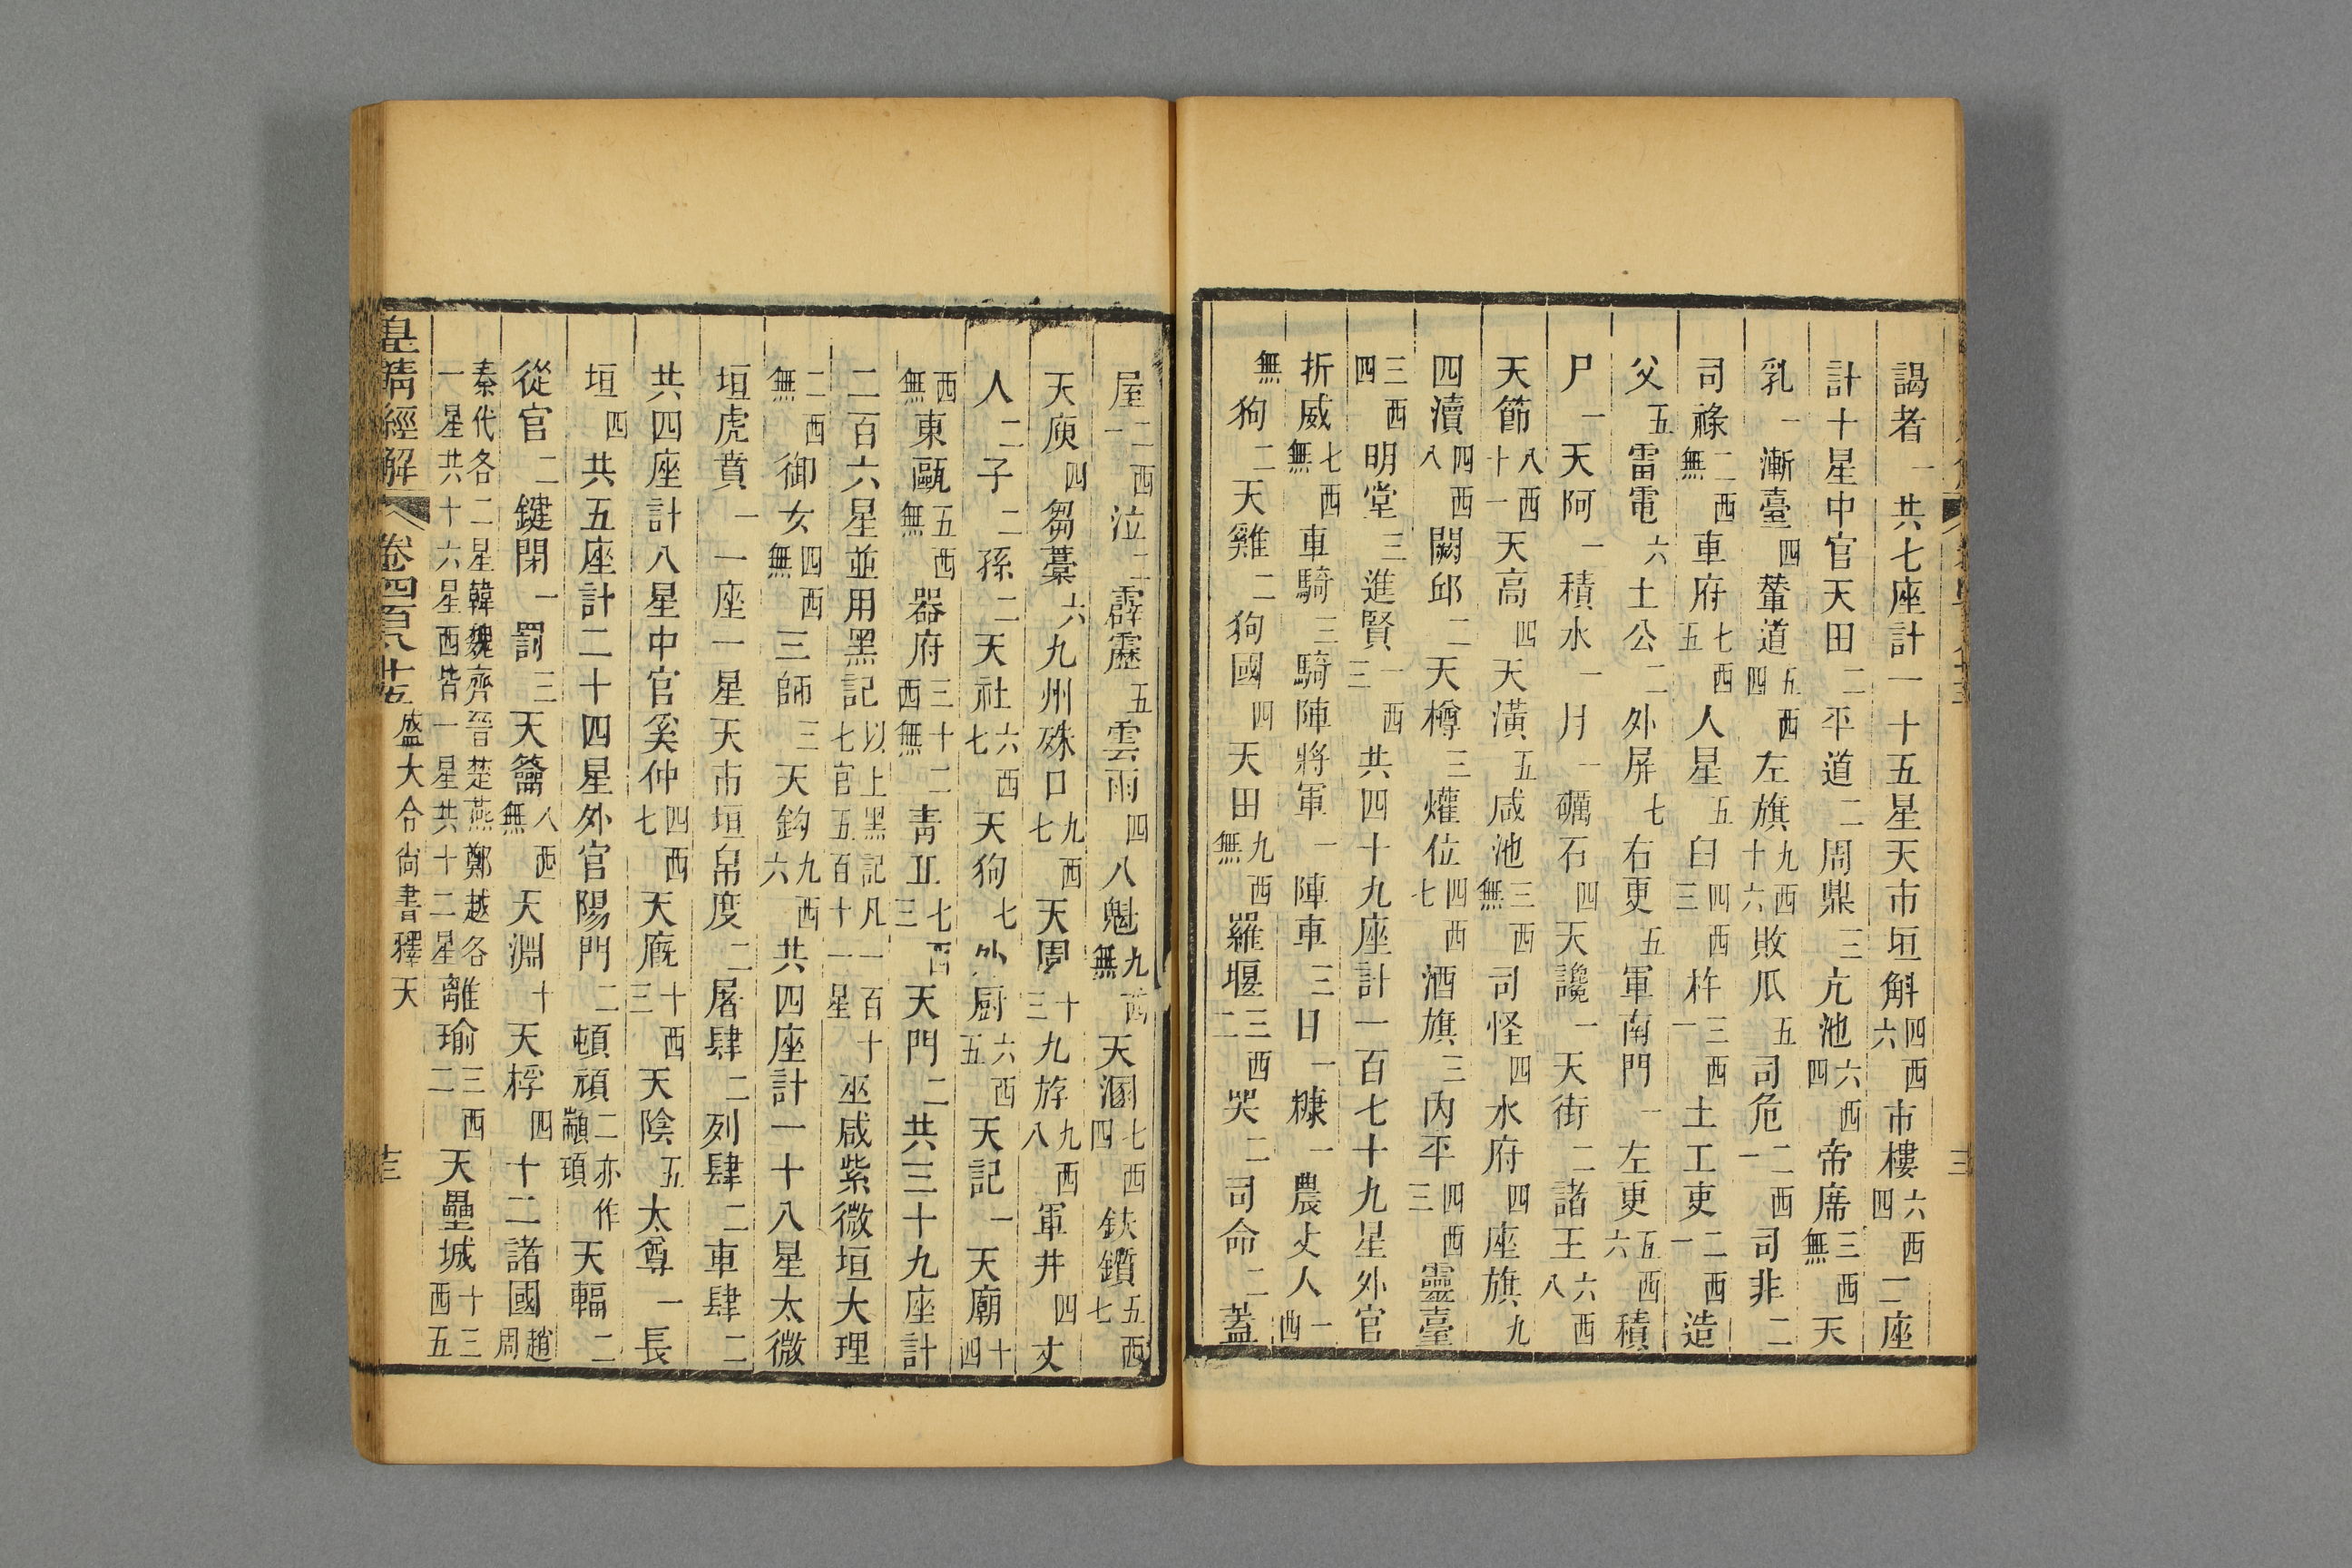 謁者一共七座計一十五星天市垣斛四西六市樓六西四二座
計十星中官天田二平道二周鼎三亢池六西四帝席三西無天
乳一漸臺四輦道五西四左旗九西十六敗瓜五司危二西一司非二
司祿二西無車府七西五人星五臼四西三杵三西一土工吏二西一造
父五雷電六土公二外屏七右更五軍南門一左更五西六積
尸一天阿一積水一月一礪石四天讒一天街二諸王六西八
天節八西十一天高四天潢五咸池三西無司怪四水府四座旗九
四瀆四西八闕邱二天樽三爟位四西七酒旗三內平四西三靈臺
三西四明堂三進賢一西三共四十九座計一百七十九星外官
折威七西無車騎三騎陣將軍一陣車三日一糠一農丈人一西
無狗二天雞二狗國四天田九西無羅堰三西二哭二司命二蓋
屋二西一泣二霹靂五雲雨四八魁九西無天溷七西四鈇鑕五西七
天庾四芻藁六九州殊口九西七天囷十三九斿九西八軍井四丈
人二子二孫二天社六西七天狗七外厨六西五天記一天廟十四
西無東甌五西無器府三十二西無青丘七西三天門二共三十九座計
二百六星並用黑記以上黑記凡一百十七官五百十一星巫咸紫微垣大理
二西無御女四西無三師三天鈎九西六共四座計一十八星太微
垣虎賁一一座一星天市垣帛度二屠肆二列肆二車肆二
共四座計八星中官奚仲四西七天廐十西三天陰五太尊一長
垣四共五座計二十四星外官陽門二頓頑二亦作顓頊天輻二
從官二鍵閉一罰三天籥八西無天淵十天桴四十二諸國趙周
秦代各二星韓魏齊晉楚燕鄭越各一星共十六星西皆一星共十二星離瑜三西二天壘城十三西五
皇清經解 卷四百八十五 盛大令尚書釋天 三